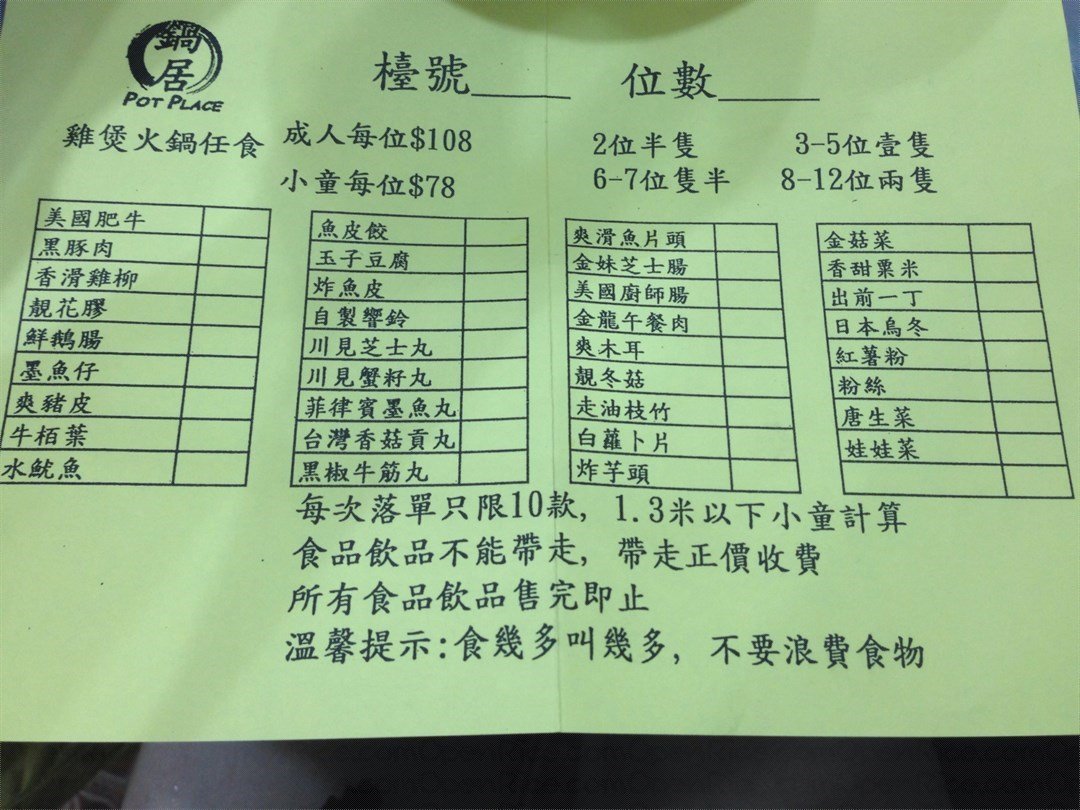 鍋居
POT PLACE
檯號____ 位數____
雞煲火鍋任食 成人每位$108 2位半隻 3-5位壹隻
小童每位$78 6-7位隻半 8-12位兩隻
美國肥牛
黑豚肉
香滑雞柳
靚花膠
鮮鵝腸
墨魚仔
爽豬皮
牛栢葉
水魷魚
魚皮餃
玉子豆腐
炸魚皮
自製響鈴
川見芝士丸
川見蟹籽丸
菲律賓墨魚丸
台灣香菇貢丸
黑椒牛筋丸
爽滑魚片頭
金妹芝士腸
美國廚師腸
金龍午餐肉
爽木耳
靚冬菇
走油枝竹
白蘿卜片
炸芋頭
金菇菜
香甜粟米
出前一丁
日本烏冬
紅薯粉
粉絲
唐生菜
娃娃菜
每次落單只限10款, 1.3米以下小童計算
食品飲品不能帶走, 帶走正價收費
所有食品飲品售完即止
溫馨提示:食幾多叫幾多, 不要浪費食物